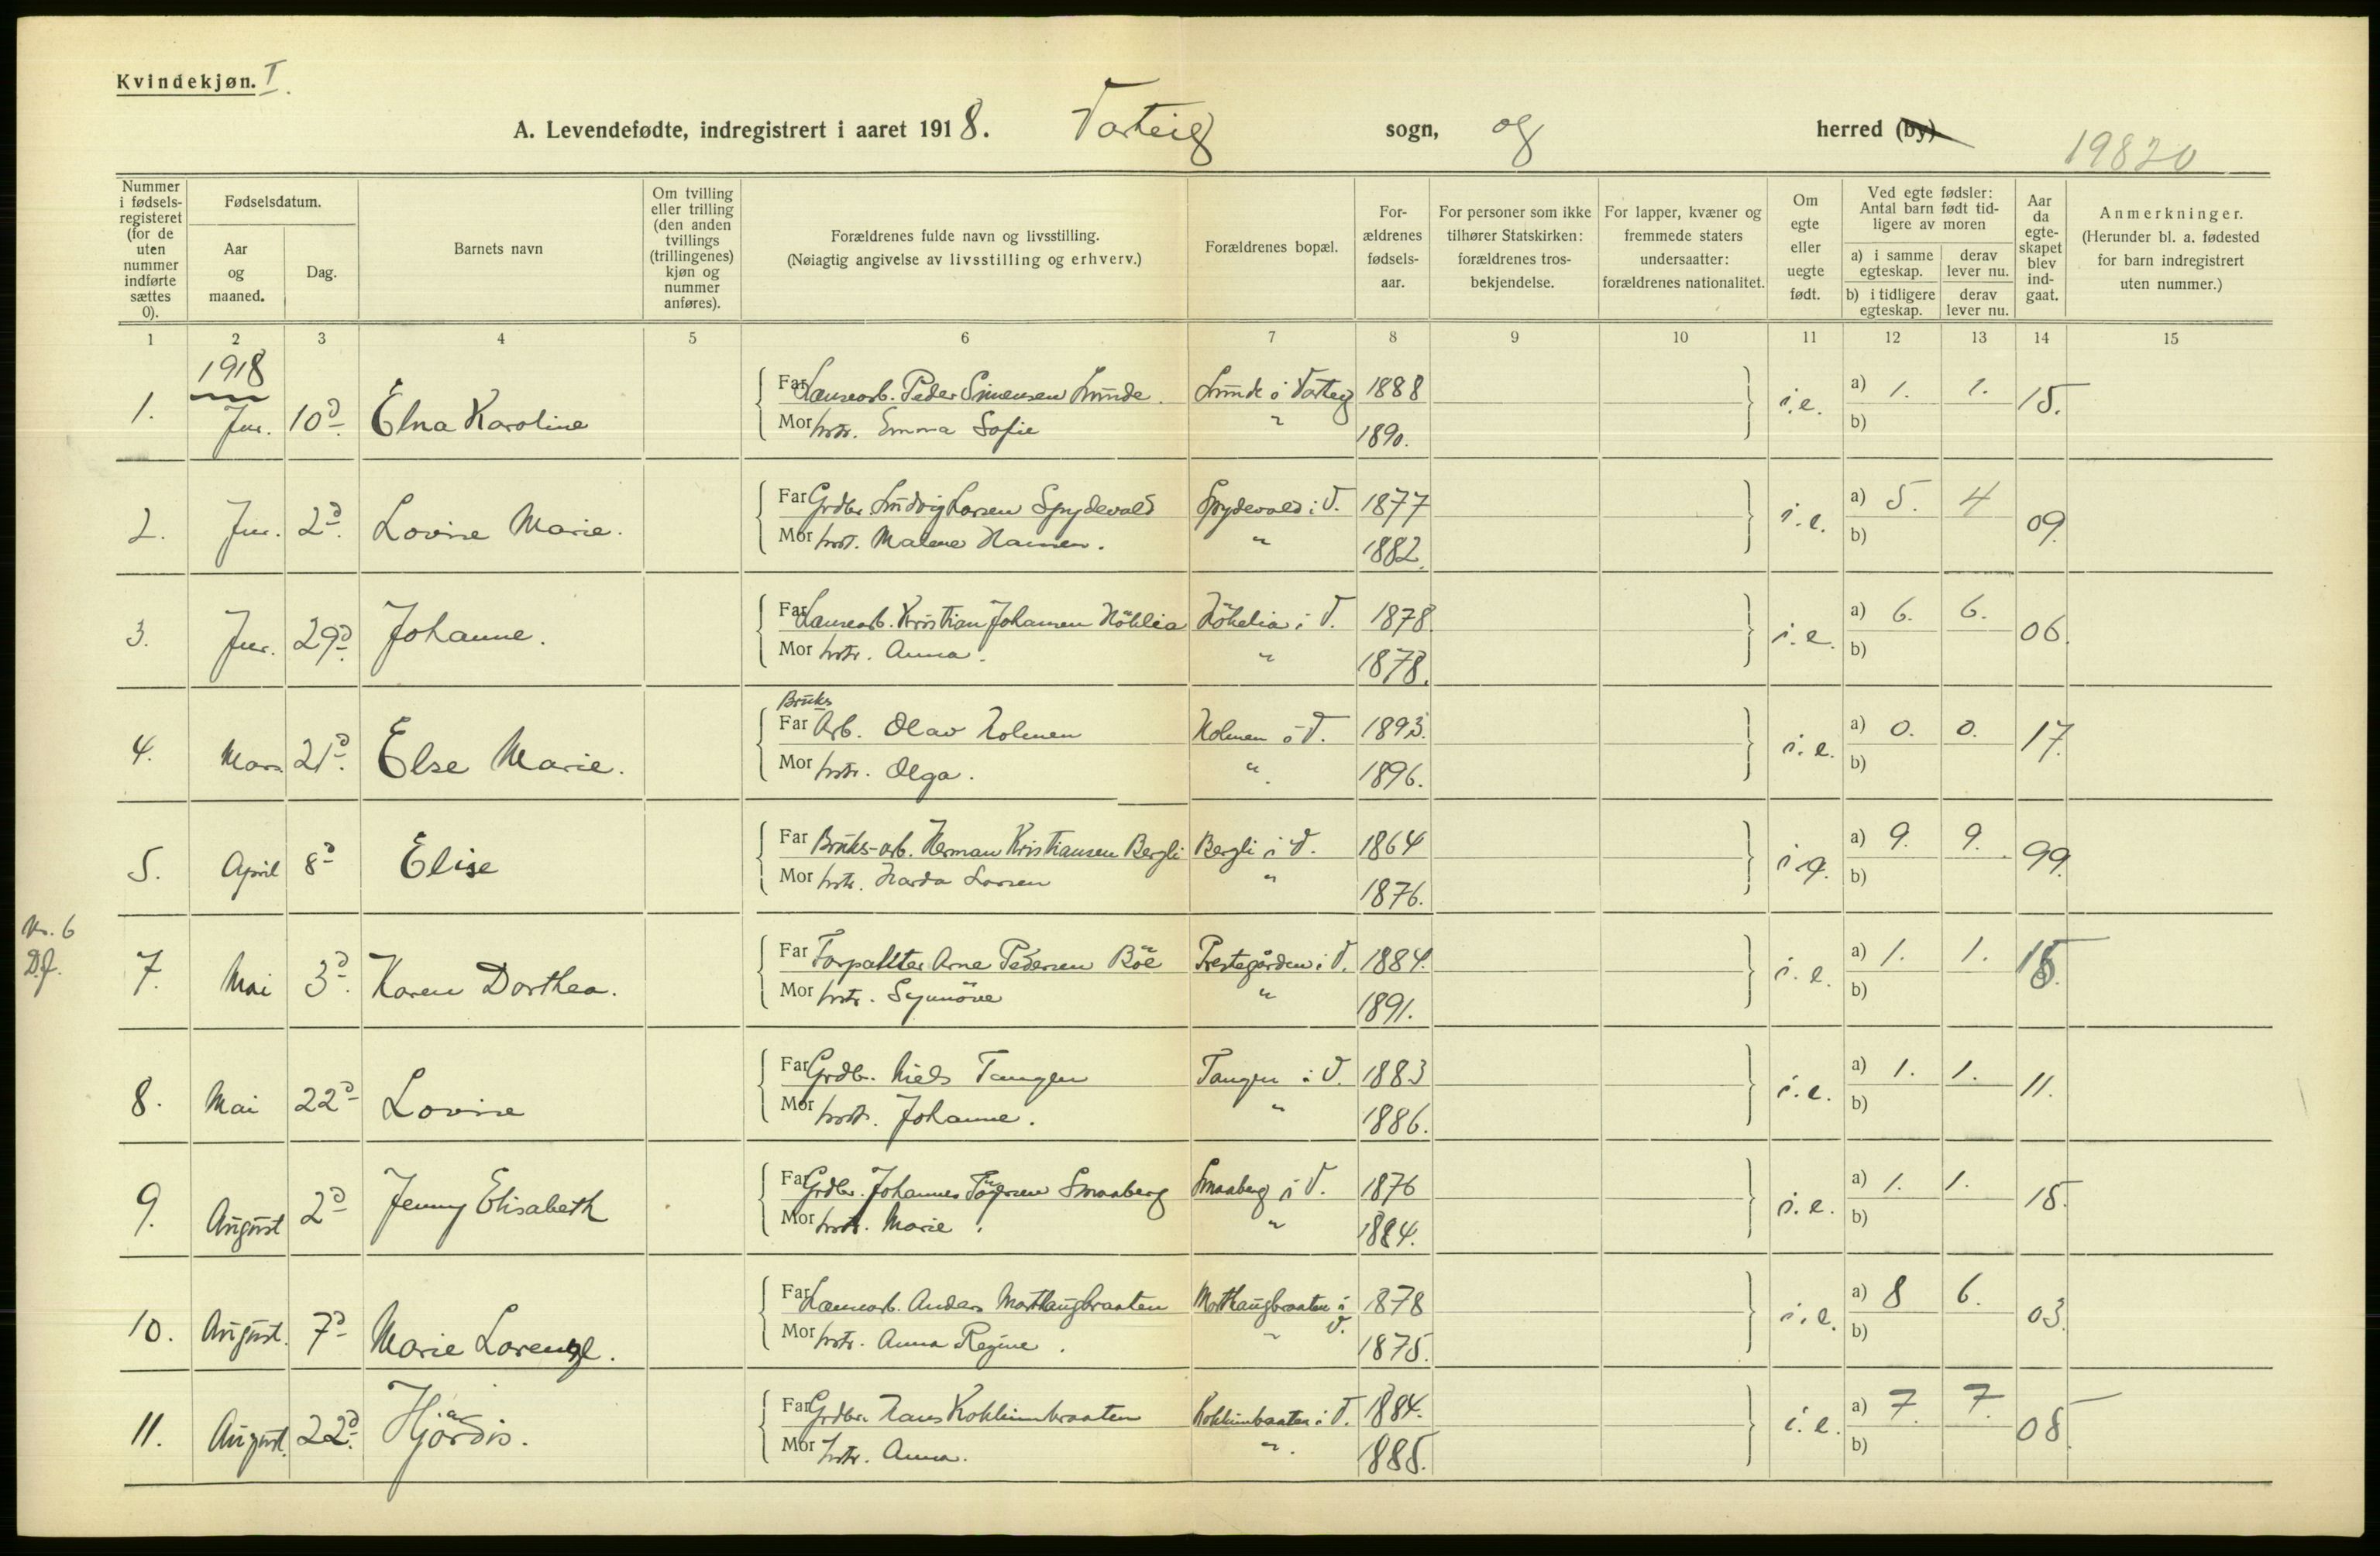 Kvindekjøn. I.
A. Levendefødte, indregistrert i aaret 1918. Varteig sogn, og herred (by)
19820
Nummer i fødselsregisteret (for de uten nummer indførte sættes 0).
Fødselsdatum.
Aar og maaned.
Dag.
Barnets navn
Om tvilling eller trilling (den anden tvillings (trillingenes) kjøn og nummer anføres).
Forældrenes fulde navn og livsstilling.
(Nøiagtig angivelse av livsstilling og erhverv.)
Forældrenes bopæl.
Forældrenes fødselsaar.
For personer som ikke tilhører Statskirken: forældrenes trosbekjendelse.
For lapper, kvæner og fremmede staters undersaatter: forældrenes nationalitet.
Om egte eller uegte født.
Ved egte fødsler: Antal barn født tidligere av moren
a) i samme egteskap.
derav lever nu.
b) i tidligere egteskap.
derav lever nu.
Aar da egteskapet blev indgaat.
Anmerkninger.
(Herunder bl. a. fødested for barn indregistrert uten nummer.)
1 2 3 4 5 6 7 8 9 10 11 12 13 14 15
1918
1. Jnr. 10d Elna Karoline Far Landarb. Peder Simensen Lunde. Lunde i Varteig 1888 i.e. a) 1. 1. 15.
Mor hstr. Emma Sofie " 1890. b)
2. Jnr. 2d. Lovise Marie. Far Grdbr. Ludvig Larsen Spydevold Spydevold i V. 1877 i.e. a) 5. 4 09.
Mor hstr. Malene Hansen. " 1882. b)
3. Jnr. 29d. Johanne. Far Kristian Johansen 1878. i.e. a) 6. 6. 06.
Mor hstr. Anna. " 1878. b)
Bruks
4. Mars 21d. Else Marie. Far Arb. Olav Holmen Holmen i V. 1893. i.e. a) 0. 0. 17.
Mor hstr. Olga. " 1896. b)
5. April 8d Elise Far Bruks-arb. Herman Kristiansen Bergli Bergli i V. 1864 a) 9. 9. 99.
Mor hstr. Larsen " 1876. b)
Nr. 6
D.f.
7. Mai 3d. Karen Dorthea. Far Forpakter Arne Pedersen Böe Prestegården i V. 1884. i.e. a) 1. 1. 15.
Mor hstr. Synnöve " 1891. b)
8. Mai 22d Lovise Far Grdb. Niels Tangen Tangen i V. 1883 i.e. a) 1. 1. 11.
Mor hstr. Johanne. " 1886. b)
9. August 2d Jenny Elisabeth Far Grdbr. Johannes Smaaberg Smaaberg i V. 1876 i.e. a) 1. 1. 15.
Mor hstr. Marie. " 1884. b)
10. August. 7d Marie Far Anders Morthaugbraaten Morthaugbraaten i V. 1878 i.e. a) 8 6. 03.
Mor hstr. Anna Regine. " 1875. b)
11. August. 22d. Hjördis. Far Grdbr. Hans 1884. i.e. a) 7. 7. 08.
Mor hstr. Anna. " 1885. b)